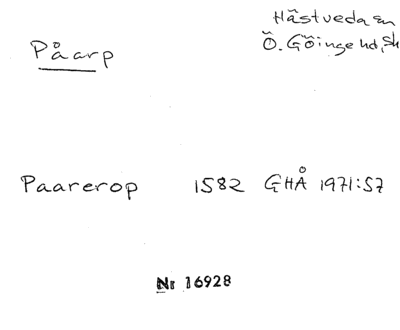 Hästveda sn
Påarp
Ö. Göinge hd, Sk
Paarerop 1582 GHÅ 1971:57
Nr 16928